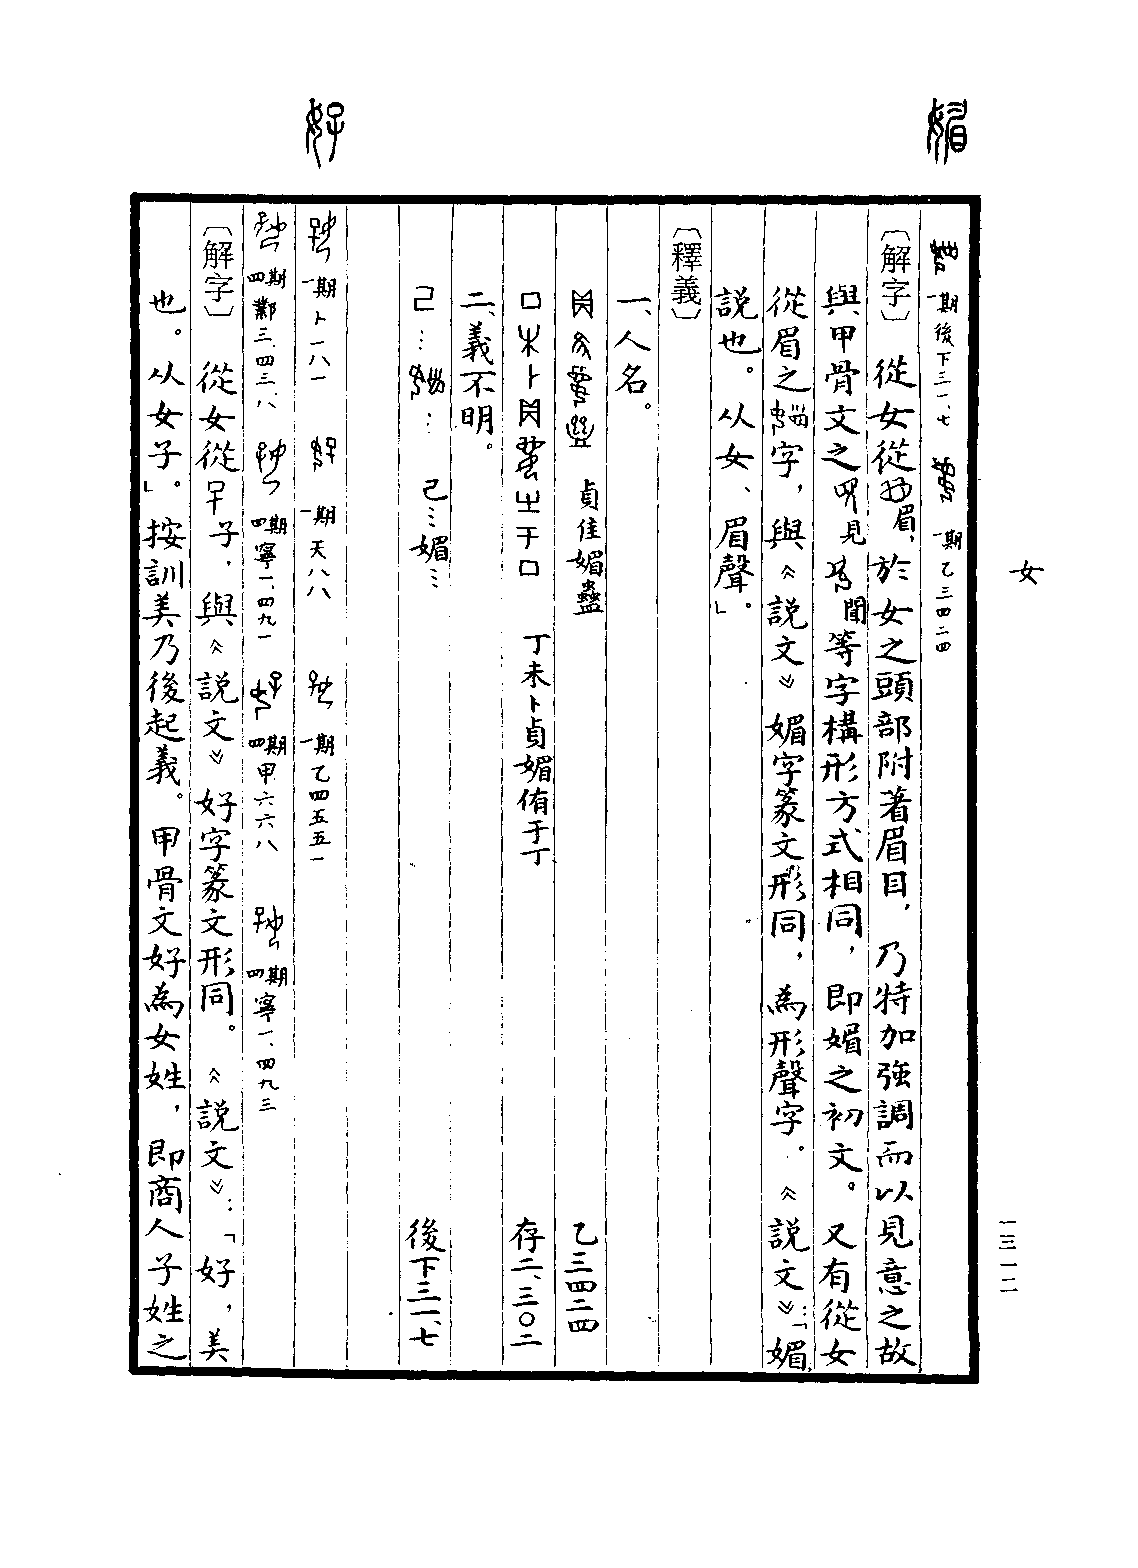 媚
一期後下三一、七 一期乙三四二四
〔解字〕從女從眉,於女之頭部附著眉目,乃特加強調而以見意之故
與甲骨文之見聞等字構形方式相同,即媚之初文。又有從女
從眉之字,與《説文》媚字篆文形同,為形聲字。《説文》:「媚,
説也。从女、眉聲」。
〔釋義〕
一、人名。
貞隹媚蠱 乙三四二四
丁未卜貞媚侑于丁 存二、三〇二
二、義不明。
己…… 己…媚… 後下三一、七
好
一期卜一八一 一期天八八 一期乙四五五一
四期鄴三、四三、八 四期寧一、四九一 四期甲六六八 四期寧一、四九三
〔解字〕從女從子,與《説文》好字篆文形同。《説文》:「好,美
也。从女子」。按訓美乃後起義。甲骨文好為女姓,即商人子姓之
女
一三一二